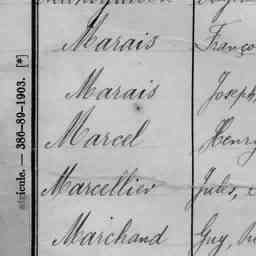 Marais Franço
Marais Joseph,
Marcel Henry
Marcellier Jules,
Marchand Guy,
386-89-1903. [*]